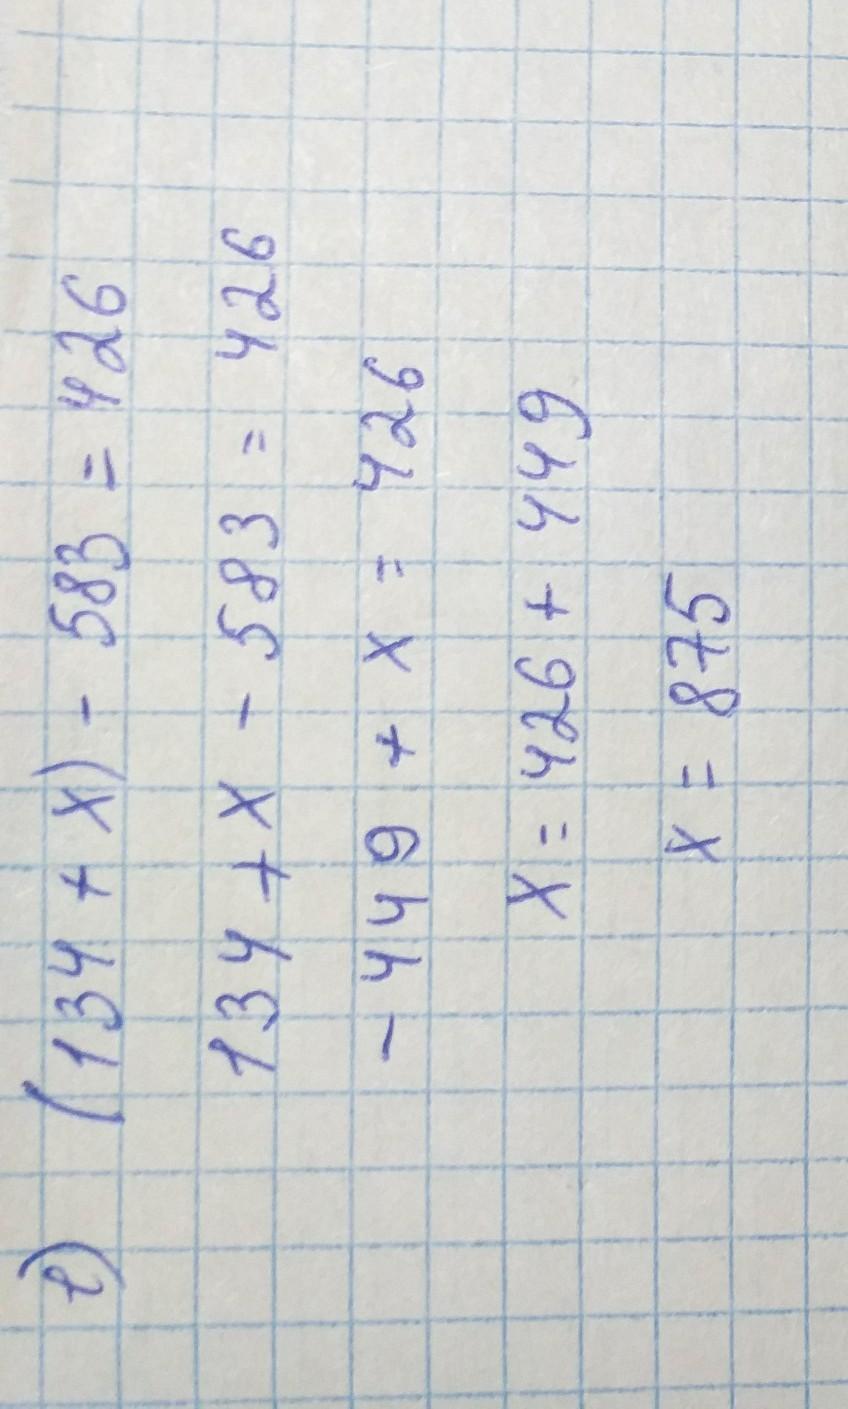 е) (134 + х) - 583 = 426
134 + х - 583 = 426
- 449 + х = 426
х = 426 + 449
х = 875